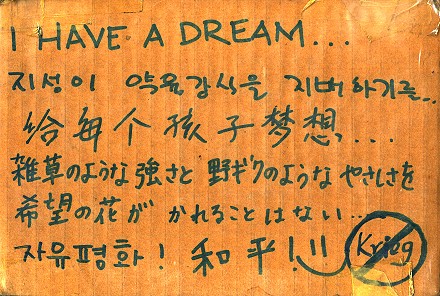 I HAVE A DREAM...
지성이 악음감식을 지버하기를...
给每个孩子梦想...
雑草のような強さと野ギクのようなやさしさを
希望の花がかれることはない...
자유평화! 和平!!! Krieg